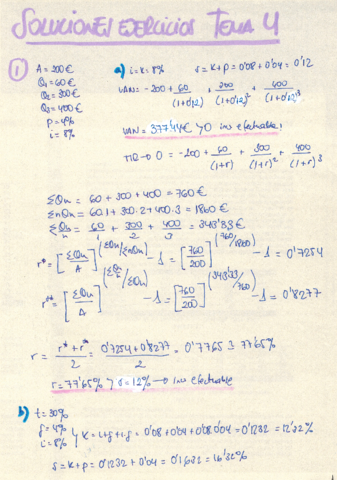 SOLUCIONES EJERCICIOS TEMA 4
① A = 200€ a) i = k = 8% s = k + p = 0'08 + 0'04 = 0'12
Q₁ = 60€
Q₂ = 300€
Q₃ = 400€
p = 4%
i = 8%
VAN = -200 + 60/(1+0'12) + 300/(1+0'12)² + 400/(1+0'12)³
VAN = 377'44€ > 0 inv efectuable!
TIR → 0 = -200 + 60/(1+r) + 300/(1+r)² + 400/(1+r)³
ΣQn = 60 + 300 + 400 = 760€
ΣnQn = 60·1 + 300·2 + 400·3 = 1860€
ΣQn/n = 60/1 + 300/2 + 400/3 = 343'33€
r* = [ΣQn/A]^(ΣQn/ΣnQn) - 1 = [760/200]^(760/1860) - 1 = 0'7254
r** = [ΣQn/A]^(ΣQn/n/ΣQn) - 1 = [760/200]^(343'33/760) - 1 = 0'8277
r = (r* + r**)/2 = (0'7254 + 0'8277)/2 = 0'7765 ≅ 77'65%
r = 77'65% > s = 12% → inv efectuable
b) t = 30%
g = 4%
i = 8% } k = i + g + i·g = 0'08 + 0'04 + 0'08·0'04 = 0'1232 = 12'32%
s = k + p = 0'1232 + 0'04 = 0'1632 = 16'32%